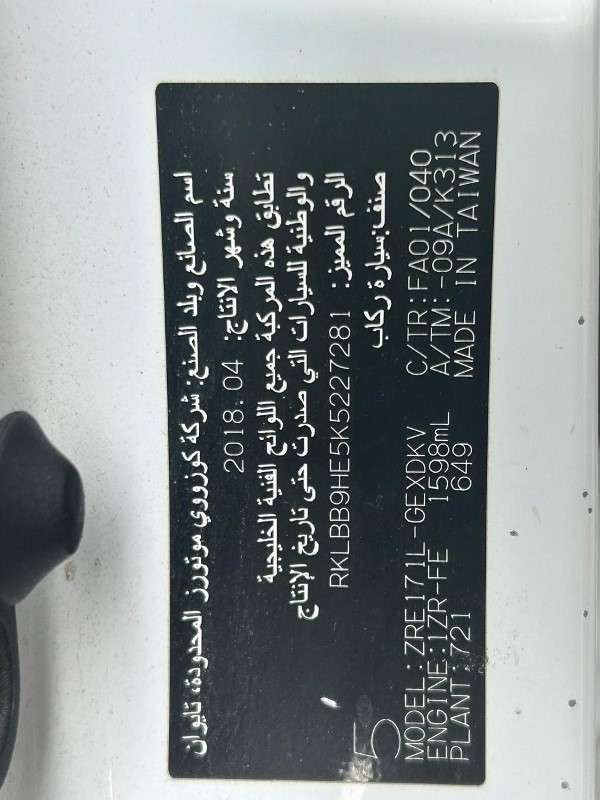 اسم الصانع وبلد الصنع: شركة كوزووي موتورز المحدودة، تايوان
سنة وشهر الانتاج: 2018.04
تطابق هذه المركبة جميع اللوائح الفنية الخليجية
والوطنية للسيارات التي صدرت حتى تاريخ الإنتاج
الرقم المميز: RKLBB9HE5K5227281
صنف:سيارة ركاب
5
MODEL:ZRE171L-GEXDKV C/TR:FA01/040
ENGINE:1ZR-FE 1598mL A/TM:-09A/K313
PLANT:721 649 MADE IN TAIWAN